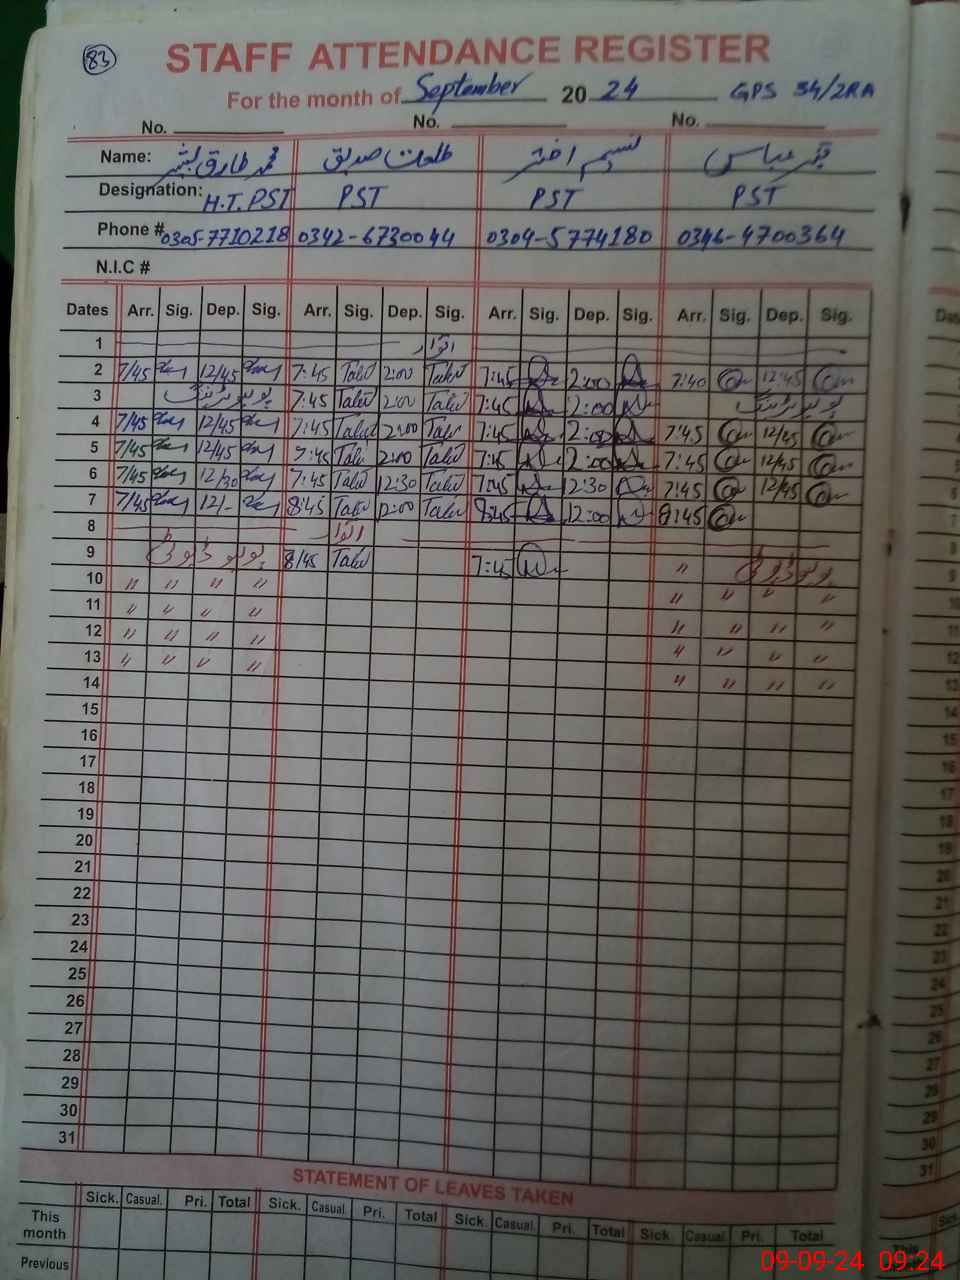 83
STAFF ATTENDANCE REGISTER
For the month of September 20 24 GPS 34/2RA
No. No. No.
Name: محمد طارق بشیر طلعت صدیق نسیم اختر قمر عباس
Designation: H.T. PST PST PST PST
Phone # 0305-7710218 0342-6730044 0304-5774180 0346-4700364
N.I.C #
Dates Arr. Sig. Dep. Sig. Arr. Sig. Dep. Sig. Arr. Sig. Dep. Sig. Arr. Sig. Dep. Sig.
1 اتوار
2 7/45 12/45 7:45 2:00 7:45 2:00 7:40 12:45
3 پولیو ٹریننگ 7:45 2:00 7:45 2:00 پولیو ٹریننگ
4 7/45 12/45 7:45 2:00 7:45 2:00 7:45 12/45
5 7/45 12/45 7:45 2:00 7:45 2:00 7:45 12/45
6 7/45 12/30 7:45 12:30 7:45 12:30 7:45 12/45
7 7/45 12/- 8:45 12:00 8:45 12:00 8:45
8 اتوار
9 پولیو ڈیوٹی 8/45 7:45 〃 پولیو ڈیوٹی
10 〃 〃 〃 〃 〃 〃 〃 〃
11 〃 〃 〃 〃 〃 〃 〃 〃
12 〃 〃 〃 〃 〃 〃 〃 〃
13 〃 〃 〃 〃 〃 〃 〃 〃
14
15
16
17
18
19
20
21
22
23
24
25
26
27
28
29
30
31
STATEMENT OF LEAVES TAKEN
Sick. Casual. Pri. Total Sick. Casual. Pri. Total Sick. Casual. Pri. Total Sick. Casual. Pri. Total
This month
Previous
09-09-24 09:24